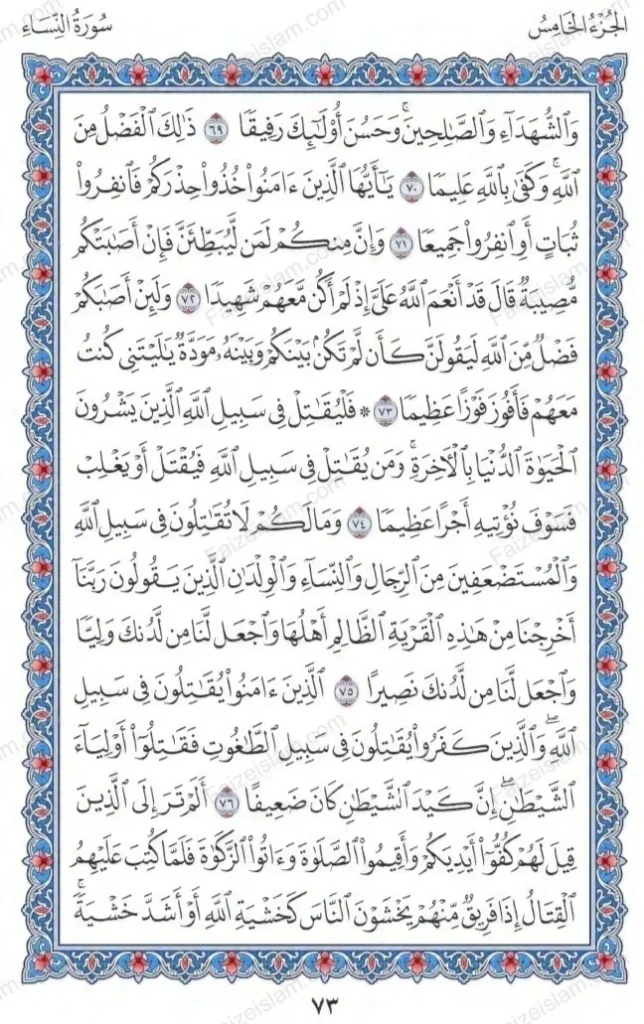 الجُزْءُ الخَامِسُ
سُورَةُ النِّسَاءِ
وَٱلشُّهَدَآءِ وَٱلصَّٰلِحِينَۚ وَحَسُنَ أُوْلَٰٓئِكَ رَفِيقٗا ٦٩ ذَٰلِكَ ٱلۡفَضۡلُ مِنَ
ٱللَّهِۚ وَكَفَىٰ بِٱللَّهِ عَلِيمٗا ٧٠ يَٰٓأَيُّهَا ٱلَّذِينَ ءَامَنُواْ خُذُواْ حِذۡرَكُمۡ فَٱنفِرُواْ
ثُبَاتٍ أَوِ ٱنفِرُواْ جَمِيعٗا ٧١ وَإِنَّ مِنكُمۡ لَمَن لَّيُبَطِّئَنَّ فَإِنۡ أَصَٰبَتۡكُم
مُّصِيبَةٞ قَالَ قَدۡ أَنۡعَمَ ٱللَّهُ عَلَيَّ إِذۡ لَمۡ أَكُن مَّعَهُمۡ شَهِيدٗا ٧٢ وَلَئِنۡ أَصَٰبَكُمۡ
فَضۡلٞ مِّنَ ٱللَّهِ لَيَقُولَنَّ كَأَن لَّمۡ تَكُنۢ بَيۡنَكُمۡ وَبَيۡنَهُۥ مَوَدَّةٞ يَٰلَيۡتَنِي كُنتُ
مَعَهُمۡ فَأَفُوزَ فَوۡزًا عَظِيمٗا ٧٣ ۞ فَلۡيُقَٰتِلۡ فِي سَبِيلِ ٱللَّهِ ٱلَّذِينَ يَشۡرُونَ
ٱلۡحَيَوٰةَ ٱلدُّنۡيَا بِٱلۡأٓخِرَةِۚ وَمَن يُقَٰتِلۡ فِي سَبِيلِ ٱللَّهِ فَيُقۡتَلۡ أَوۡ يَغۡلِبۡ
فَسَوۡفَ نُؤۡتِيهِ أَجۡرًا عَظِيمٗا ٧٤ وَمَا لَكُمۡ لَا تُقَٰتِلُونَ فِي سَبِيلِ ٱللَّهِ
وَٱلۡمُسۡتَضۡعَفِينَ مِنَ ٱلرِّجَالِ وَٱلنِّسَآءِ وَٱلۡوِلۡدَٰنِ ٱلَّذِينَ يَقُولُونَ رَبَّنَآ
أَخۡرِجۡنَا مِنۡ هَٰذِهِ ٱلۡقَرۡيَةِ ٱلظَّالِمِ أَهۡلُهَا وَٱجۡعَل لَّنَا مِن لَّدُنكَ وَلِيّٗا
وَٱجۡعَل لَّنَا مِن لَّدُنكَ نَصِيرًا ٧٥ ٱلَّذِينَ ءَامَنُواْ يُقَٰتِلُونَ فِي سَبِيلِ
ٱللَّهِۖ وَٱلَّذِينَ كَفَرُواْ يُقَٰتِلُونَ فِي سَبِيلِ ٱلطَّٰغُوتِ فَقَٰتِلُوٓاْ أَوۡلِيَآءَ
ٱلشَّيۡطَٰنِۖ إِنَّ كَيۡدَ ٱلشَّيۡطَٰنِ كَانَ ضَعِيفًا ٧٦ أَلَمۡ تَرَ إِلَى ٱلَّذِينَ
قِيلَ لَهُمۡ كُفُّوٓاْ أَيۡدِيَكُمۡ وَأَقِيمُواْ ٱلصَّلَوٰةَ وَءَاتُواْ ٱلزَّكَوٰةَ فَلَمَّا كُتِبَ عَلَيۡهِمُ
ٱلۡقِتَالُ إِذَا فَرِيقٞ مِّنۡهُمۡ يَخۡشَوۡنَ ٱلنَّاسَ كَخَشۡيَةِ ٱللَّهِ أَوۡ أَشَدَّ خَشۡيَةٗۚ
٧٣
Faizeislam.com